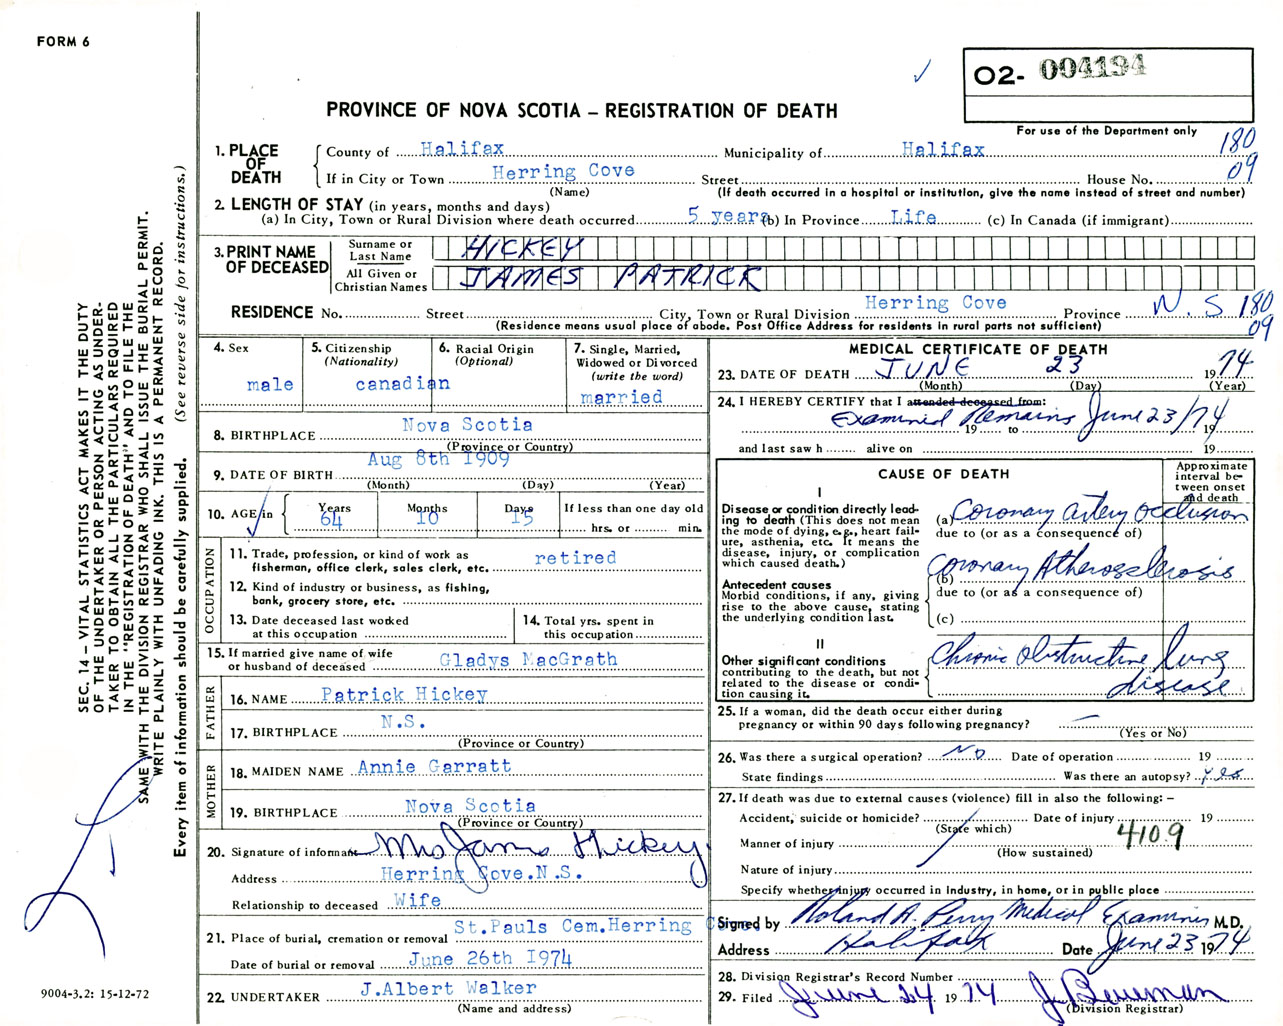 FORM 6
O2- 004194
PROVINCE OF NOVA SCOTIA – REGISTRATION OF DEATH
For use of the Department only
180
09
1. PLACE OF DEATH
County of Halifax Municipality of Halifax
If in City or Town Herring Cove Street House No.
(Name) (If death occurred in a hospital or institution, give the name instead of street and number)
2. LENGTH OF STAY (in years, months and days)
(a) In City, Town or Rural Division where death occurred 5 years (b) In Province Life (c) In Canada (if immigrant)
3. PRINT NAME OF DECEASED
Surname or Last Name HICKEY
All Given or Christian Names JAMES PATRICK
RESIDENCE No. Street City, Town or Rural Division Herring Cove Province N.S 180
09
(Residence means usual place of abode. Post Office Address for residents in rural parts not sufficient)
4. Sex
male
5. Citizenship
(Nationality)
canadian
6. Racial Origin
(Optional)
7. Single, Married,
Widowed or Divorced
(write the word)
married
8. BIRTHPLACE Nova Scotia
(Province or Country)
9. DATE OF BIRTH Aug 8th 1909
(Month) (Day) (Year)
10. AGE in
Years 64 Months 10 Days 15
If less than one day old
hrs. or min.
OCCUPATION
11. Trade, profession, or kind of work as
fisherman, office clerk, sales clerk, etc. retired
12. Kind of industry or business, as fishing,
bank, grocery store, etc.
13. Date deceased last worked
at this occupation
14. Total yrs. spent in
this occupation
15. If married give name of wife
or husband of deceased Gladys MacGrath
FATHER
16. NAME Patrick Hickey
17. BIRTHPLACE N.S.
(Province or Country)
MOTHER
18. MAIDEN NAME Annie Garratt
19. BIRTHPLACE Nova Scotia
(Province or Country)
20. Signature of informant Mrs James Hickey
Address Herring Cove.N.S.
Relationship to deceased Wife
21. Place of burial, cremation or removal St.Pauls Cem.Herring Cove.
Date of burial or removal June 26th 1974
22. UNDERTAKER J.Albert Walker
(Name and address)
MEDICAL CERTIFICATE OF DEATH
23. DATE OF DEATH JUNE 23 1974
(Month) (Day) (Year)
24. I HEREBY CERTIFY that I attended deceased from:
Examined Remains June 23/74
19 to 19
and last saw h alive on 19
CAUSE OF DEATH
Approximate
interval be-
tween onset
and death
I
Disease or condition directly lead-
ing to death (This does not mean
the mode of dying, e.g., heart fail-
ure, asthenia, etc. It means the
disease, injury, or complication
which caused death.)
(a) Coronary artery occlusion
due to (or as a consequence of)
Antecedent causes
Morbid conditions, if any, giving
rise to the above cause, stating
the underlying condition last.
(b) Coronary Atherosclerosis
due to (or as a consequence of)
(c)
II
Other significant conditions
contributing to the death, but not
related to the disease or condi-
tion causing it.
Chronic Obstructive lung
disease
25. If a woman, did the death occur either during
pregnancy or within 90 days following pregnancy? —
(Yes or No)
26. Was there a surgical operation? No Date of operation 19
State findings Was there an autopsy? yes
27. If death was due to external causes (violence) fill in also the following: –
Accident, suicide or homicide? Date of injury 19
(State which)
4109
Manner of injury
(How sustained)
Nature of injury
Specify whether injury occurred in Industry, in home, or in public place
Signed by Roland A. Perry Medical Examiner M.D.
Address Halifax Date June 23 1974
28. Division Registrar's Record Number
29. Filed June 24 1974
(Division Registrar)
SEC. 14 – VITAL STATISTICS ACT MAKES IT THE DUTY
OF THE UNDERTAKER OR PERSON ACTING AS UNDER-
TAKER TO OBTAIN ALL THE PARTICULARS REQUIRED
IN THE "REGISTRATION OF DEATH" AND TO FILE THE
SAME WITH THE DIVISION REGISTRAR WHO SHALL ISSUE THE BURIAL PERMIT.
WRITE PLAINLY WITH UNFADING INK. THIS IS A PERMANENT RECORD.
Every item of information should be carefully supplied. (See reverse side for instructions.)
9004-3.2: 15-12-72